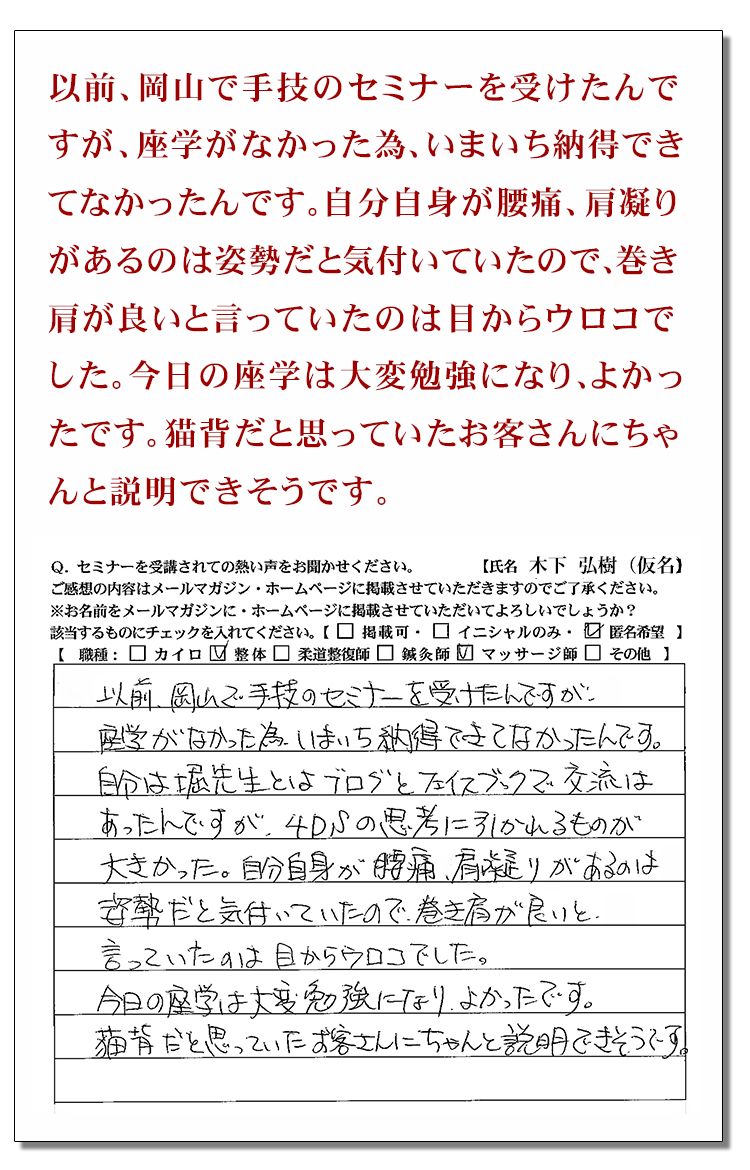 以前、岡山で手技のセミナーを受けたんで
すが、座学がなかった為、いまいち納得でき
てなかったんです。自分自身が腰痛、肩凝り
があるのは姿勢だと気付いていたので、巻き
肩が良いと言っていたのは目からウロコで
した。今日の座学は大変勉強になり、よかっ
たです。猫背だと思っていたお客さんにちゃ
んと説明できそうです。
Q. セミナーを受講されての熱い声をお聞かせください。 【氏名 木下 弘樹（仮名】
ご感想の内容はメールマガジン・ホームページに掲載させていただきますのでご了承ください。
※お名前をメールマガジンに・ホームページに掲載させていただいてよろしいでしょうか？
該当するものにチェックを入れてください。【 □ 掲載可・ □ イニシャルのみ・ ☑ 匿名希望 】
【 職種： □ カイロ ☑ 整体 □ 柔道整復師 □ 鍼灸師 ☑ マッサージ師 □ その他 】
以前、岡山で手技のセミナーを受けたんですが、
座学がなかった為、いまいち納得できてなかったんです。
自分は堀先生とはブログとフェイスブックで交流は
あったんですが、4DSの思考に引かれるものが
大きかった。自分自身が腰痛、肩凝りがあるのは
姿勢だと気付いていたので、巻き肩が良いと、
言っていたのは目からウロコでした。
今日の座学は大変勉強になり、よかったです。
猫背だと思っていたお客さんにちゃんと説明できそうです。